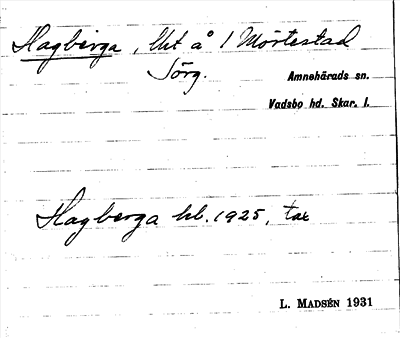 Hagberga, lht å 1 Mörtestad
Jörg.
Amnehärads sn.
Vadsbo hd. Skar. l.
Hagberga kb. 1925, tax
L. MADSÉN 1931